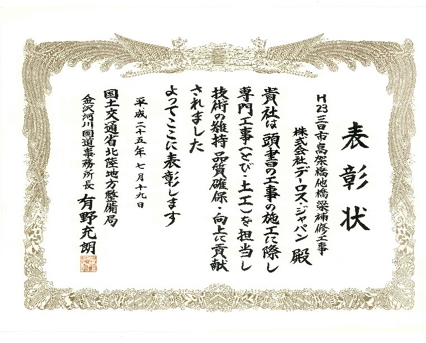 表彰状
H23三日市高架橋他橋梁補修工事
株式会社デーロス・ジャパン 殿
貴社は頭書の工事の施工に際し
専門工事（とび・土工）を担当し
技術の維持・品質確保・向上に貢献
されました
よってここに表彰します
平成二十五年 七月十九日
国土交通省北陸地方整備局
金沢河川国道事務所長 有野充朗